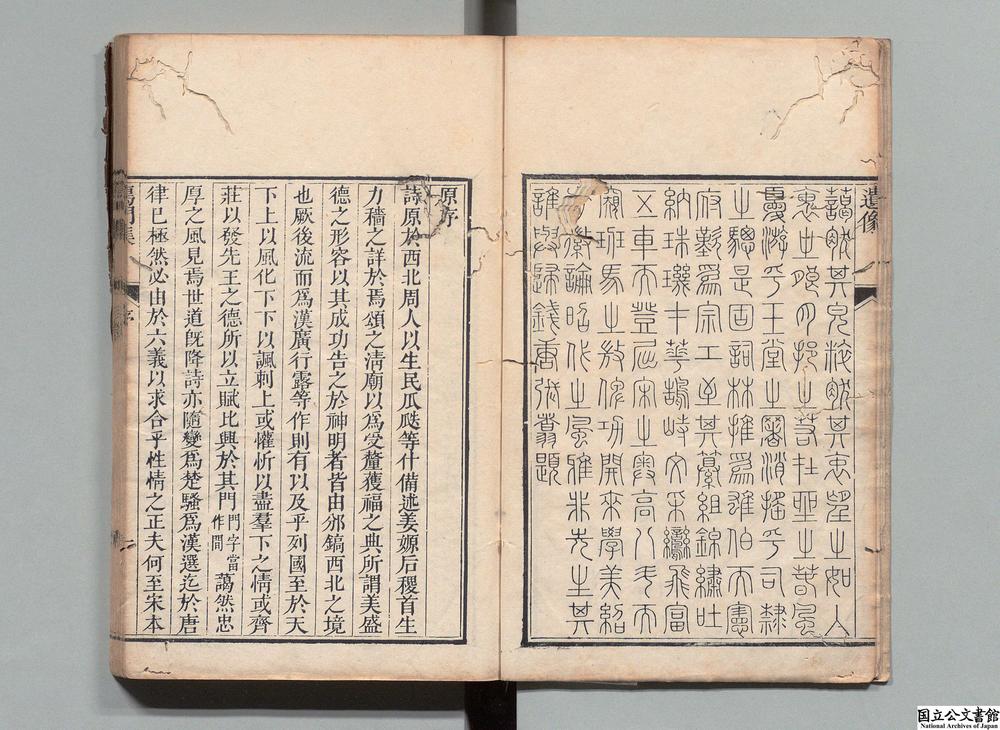 遺像
藹然其皃粹然其衷望之如人
月挹之若杜聖之
游乎玉堂之署消搖乎司隸
之驄是固詞林推為雄伯而憲
府歎為宗工至其纂組錦繡吐
納珠璣鵠峙文采鸞飛富
五車而登屈宋之高八斗而
班馬之修功開來學美紹
徽論昭代之風雅非先生其
誰與歸錢唐題
原序
詩原於西北周人以生民瓜瓞等什備述姜嫄后稷首生
力穡之詳於焉頌之清廟以為受釐獲福之典所謂美盛
德之形容以其成功告之於神明者皆由邠鎬西北之境
也厥後流而為漢廣行露等作則有以及乎列國至於天
下上以風化下下以諷刺上或懽忻以盡羣下之情或齊
莊以發先王之德所以立賦比興於其門門字當作間藹然忠
厚之風見焉世道既降詩亦隨變為楚騷為漢選迄於唐
律已極然必由於六義以求合乎性情之正夫何至宋本
鴈門集
序
一
国立公文書館
National Archives of Japan